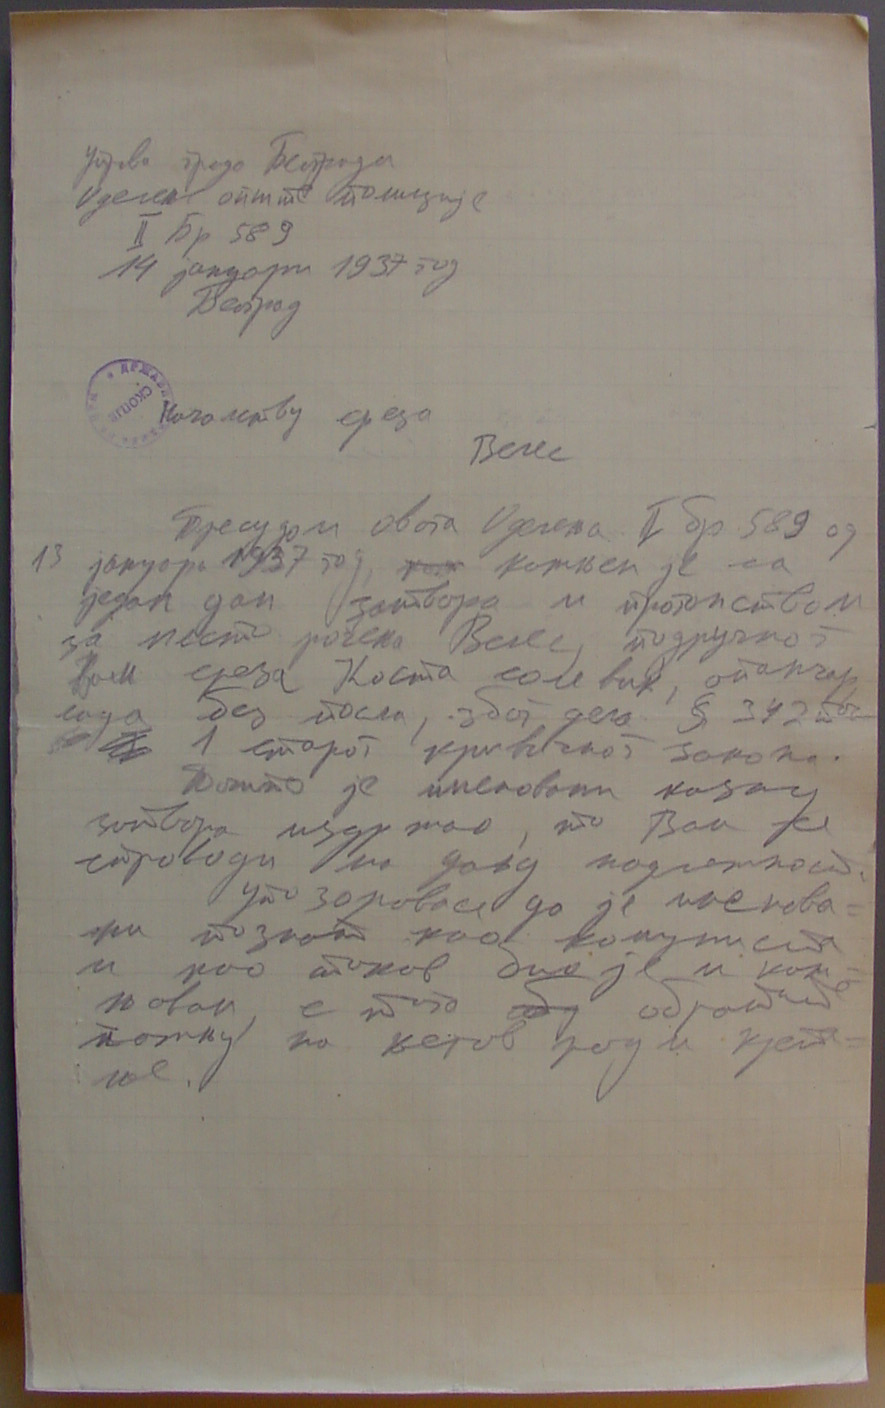 Управа града Београда
Оделење опште полиције
II Бр 589
14 јануари 1937 год
Београд
СКОПЈЕ
Начелству среза
Велес
Пресудом овога Оделења II бр 589 од
13 јануара 1937 год, кажњен је са
један дан затвора и прогонством
за место рођења Велес, подручног
Вам среза Коста Солевић, опанчар
сада без посла, због дела § 342 тач
1 старог кривичног закона.
Пошто је именовани казну
затвора издржао, то Вам се
спроводи на даљу надлежност.
Упозорава се да је именова=
ни познат као комуниста
и као такав био је и каж=
њаван, с тога обратити
пажњу на његов рад и крета=
ње.